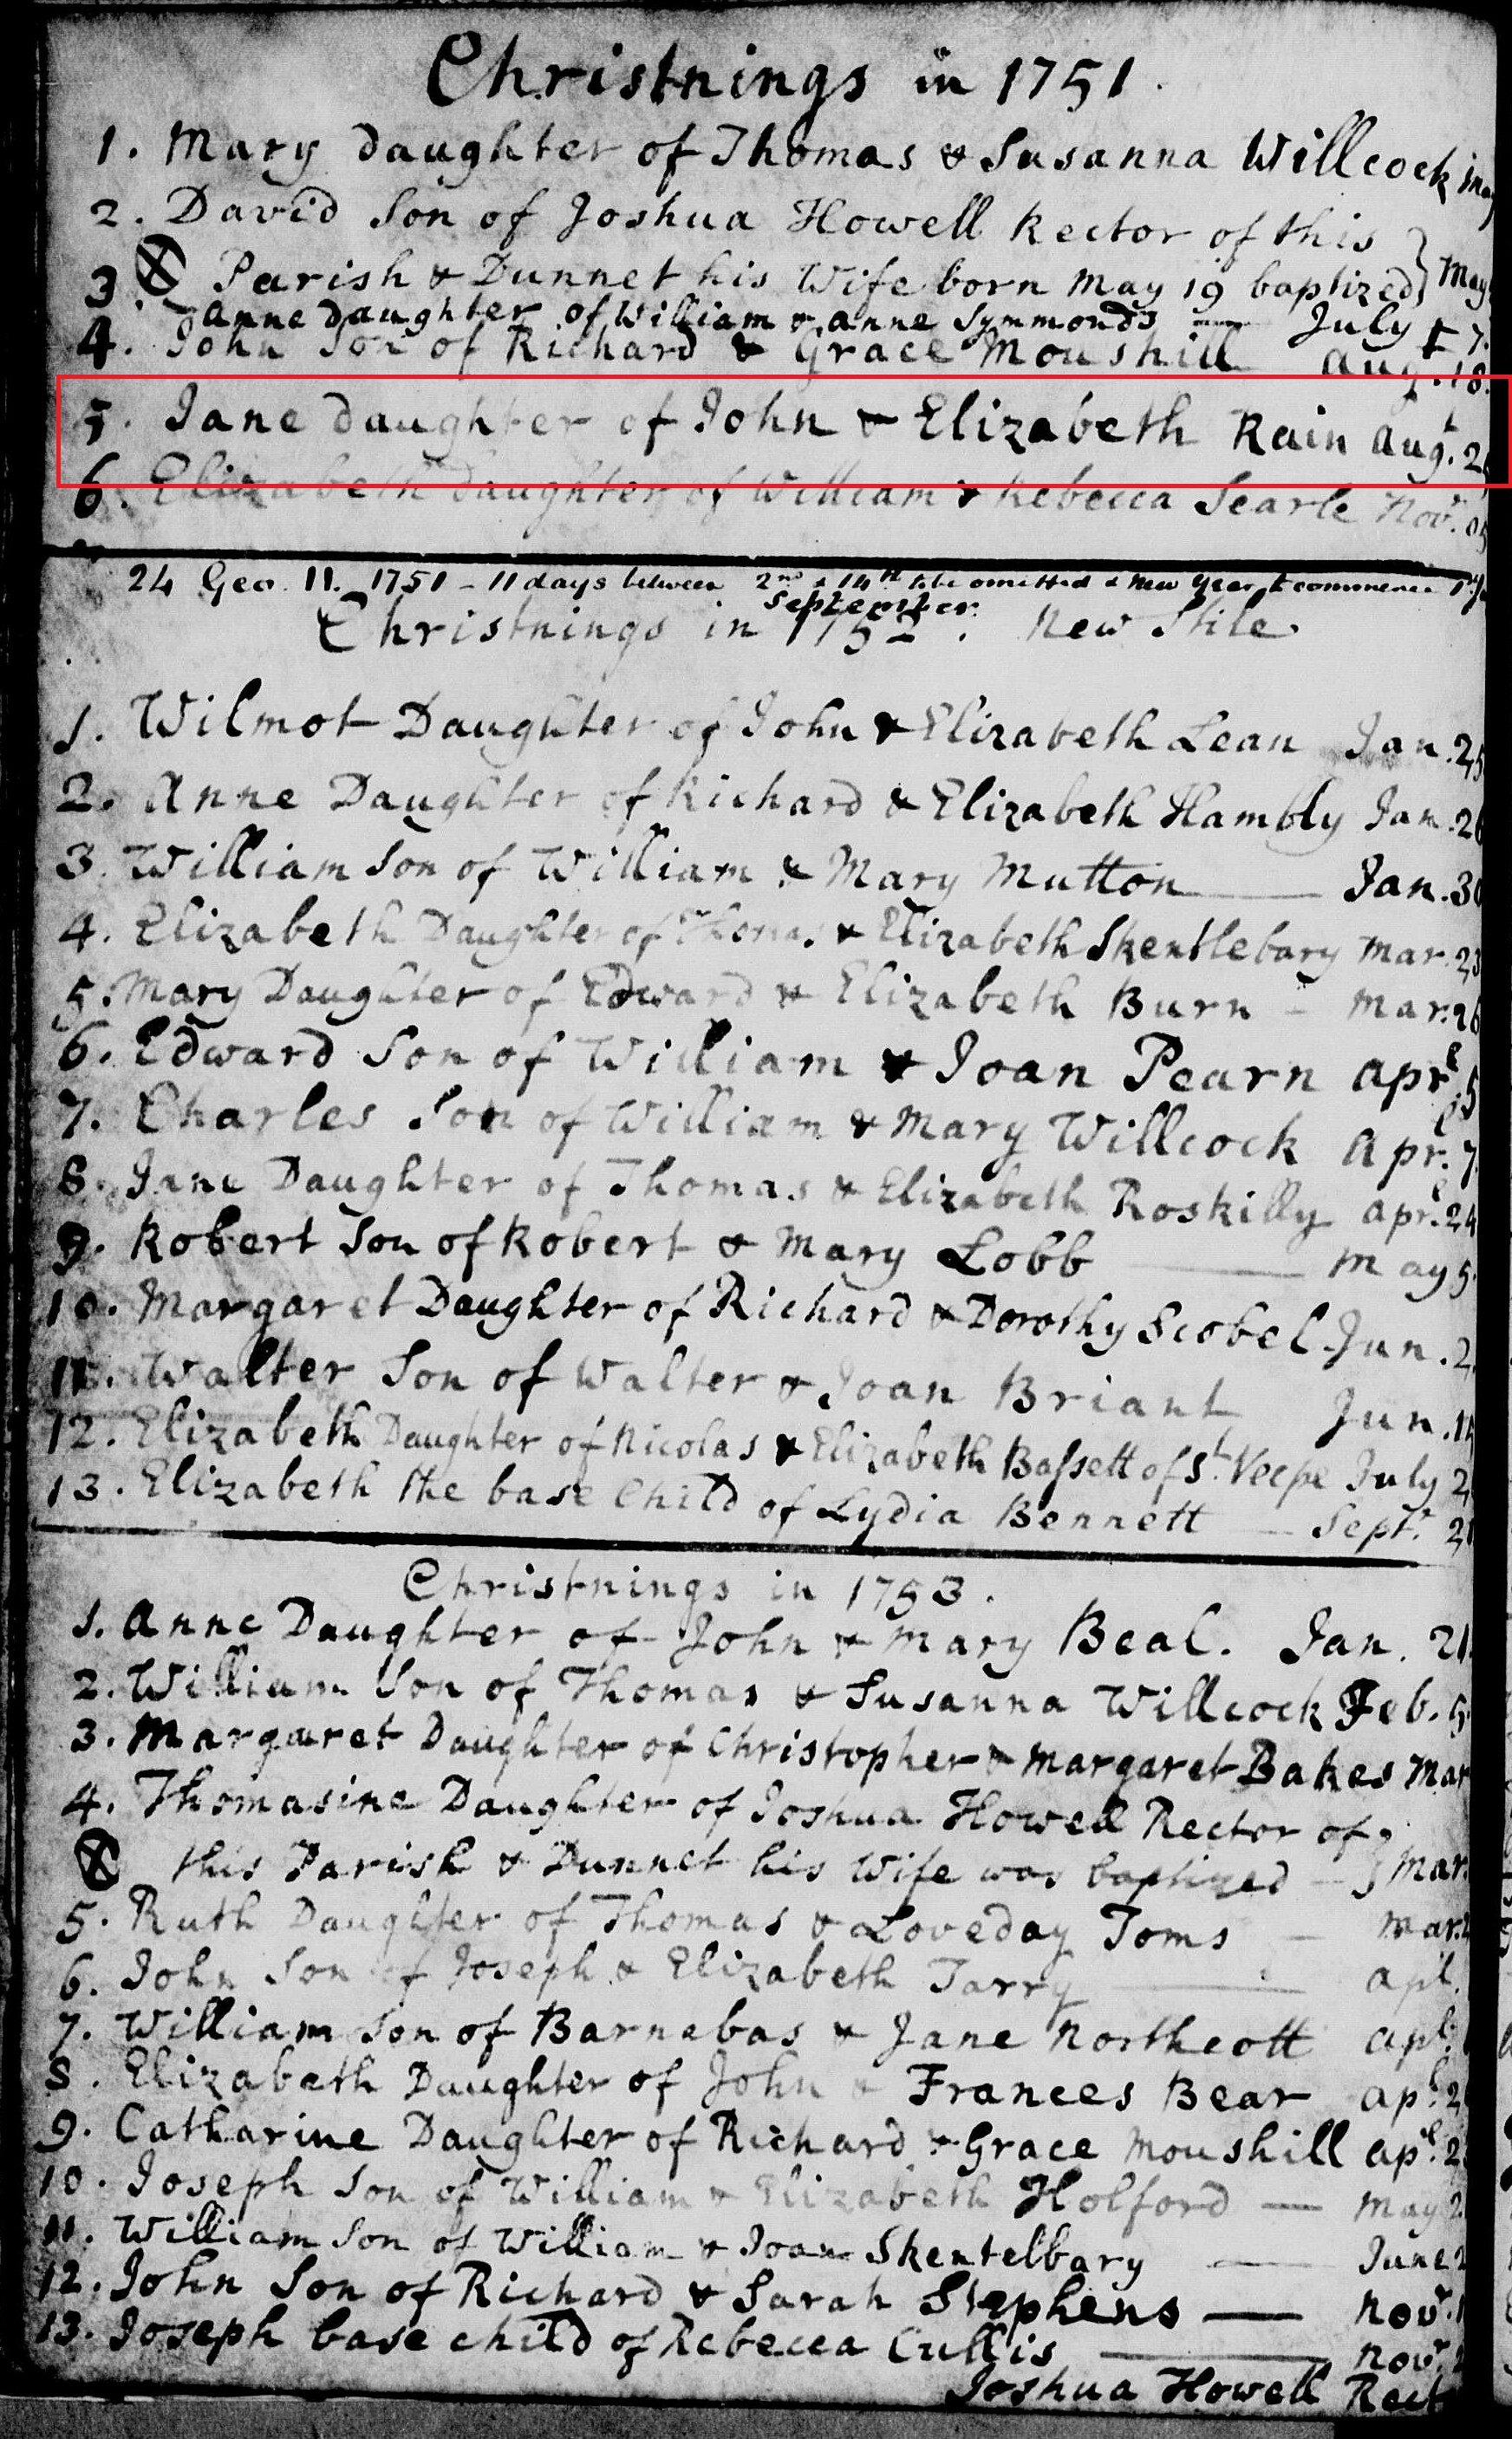 Christnings in 1751.
1. Mary Daughter of Thomas & Susanna Willcock May
2. David Son of Joshua Howell Rector of this
Parish & Dunnet his Wife born May 19 baptized} May
3. Anne Daughter of William & Anne Symmonds — July 7.
4. John Son of Richard & Grace Moushill Augt. 18.
5. Jane Daughter of John & Elizabeth Rain Augt. 2
6. Elizabeth Daughter of William & Rebecca Searle Novr.
24 Geo. II. 1751 - 11 days between 2nd & 14th to be omitted & New Year to commence 1st
September
Christnings in 1752. New Stile.
1. Wilmot Daughter of John & Elizabeth Lean Jan. 25
2. Anne Daughter of Richard & Elizabeth Hambly Jan. 26
3. William Son of William & Mary Mutton — Jan. 30
4. Elizabeth Daughter of Thomas & Elizabeth Skentlebary Mar. 23
5. Mary Daughter of Edward & Elizabeth Burn - Mar. 26
6. Edward Son of William & Joan Pearn Aprl. 5
7. Charles Son of William & Mary Willcock Aprl. 7
8. Jane Daughter of Thomas & Elizabeth Roskilly Aprl. 24
9. Robert Son of Robert & Mary Lobb — May 5
10. Margaret Daughter of Richard & Dorothy Scobel Jun. 2
11. Walter Son of Walter & Joan Briant Jun. 1
12. Elizabeth Daughter of Nicolas & Elizabeth Bassett of St. Veepe July 2
13. Elizabeth the base Child of Lydia Bennett — Septr. 2
Christnings in 1753.
1. Anne Daughter of John & Mary Beal. Jan. 21
2. William Son of Thomas & Susanna Willcock Feb. 5
3. Margaret Daughter of Christopher & Margaret Bakes Mar
4. Thomasine Daughter of Joshua Howell Rector of
this Parish & Dunnet his Wife was baptized -} Mar.
5. Ruth Daughter of Thomas & Loveday Toms - Mar.
6. John Son of Joseph & Elizabeth Tarry — Apl.
7. William Son of Barnebas & Jane Northcott Apl.
8. Elizabeth Daughter of John & Frances Bear Apl. 2
9. Catharine Daughter of Richard & Grace Moushill Apl. 2
10. Joseph Son of William & Elizabeth Holford — May 2
11. William Son of William & Joan Skentelbary — June 2
12. John Son of Richard & Sarah Stephens — Novr. 1
13. Joseph base child of Rebecca Cullis — Novr.
Joshua Howell Rect